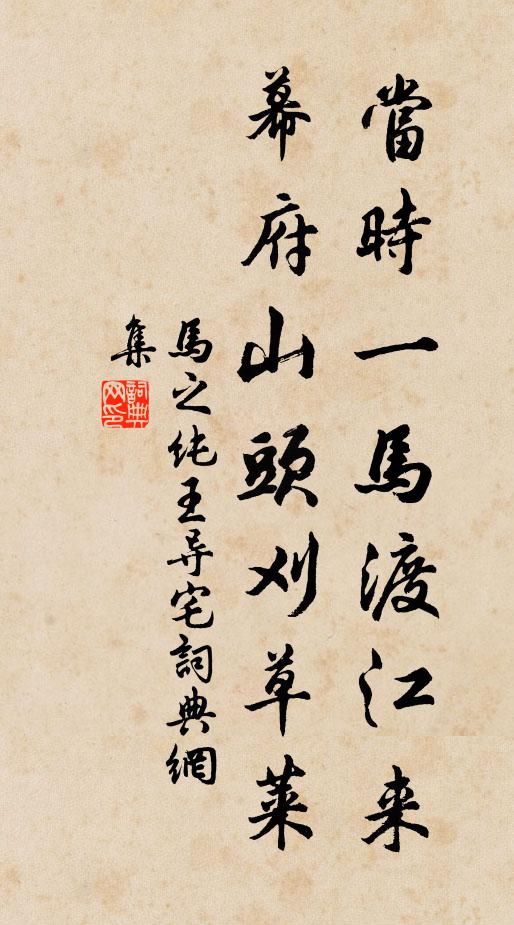 當時一馬渡江来
幕府山頭刈草萊
馬之纯王导宅詞典網
集
詞典网印